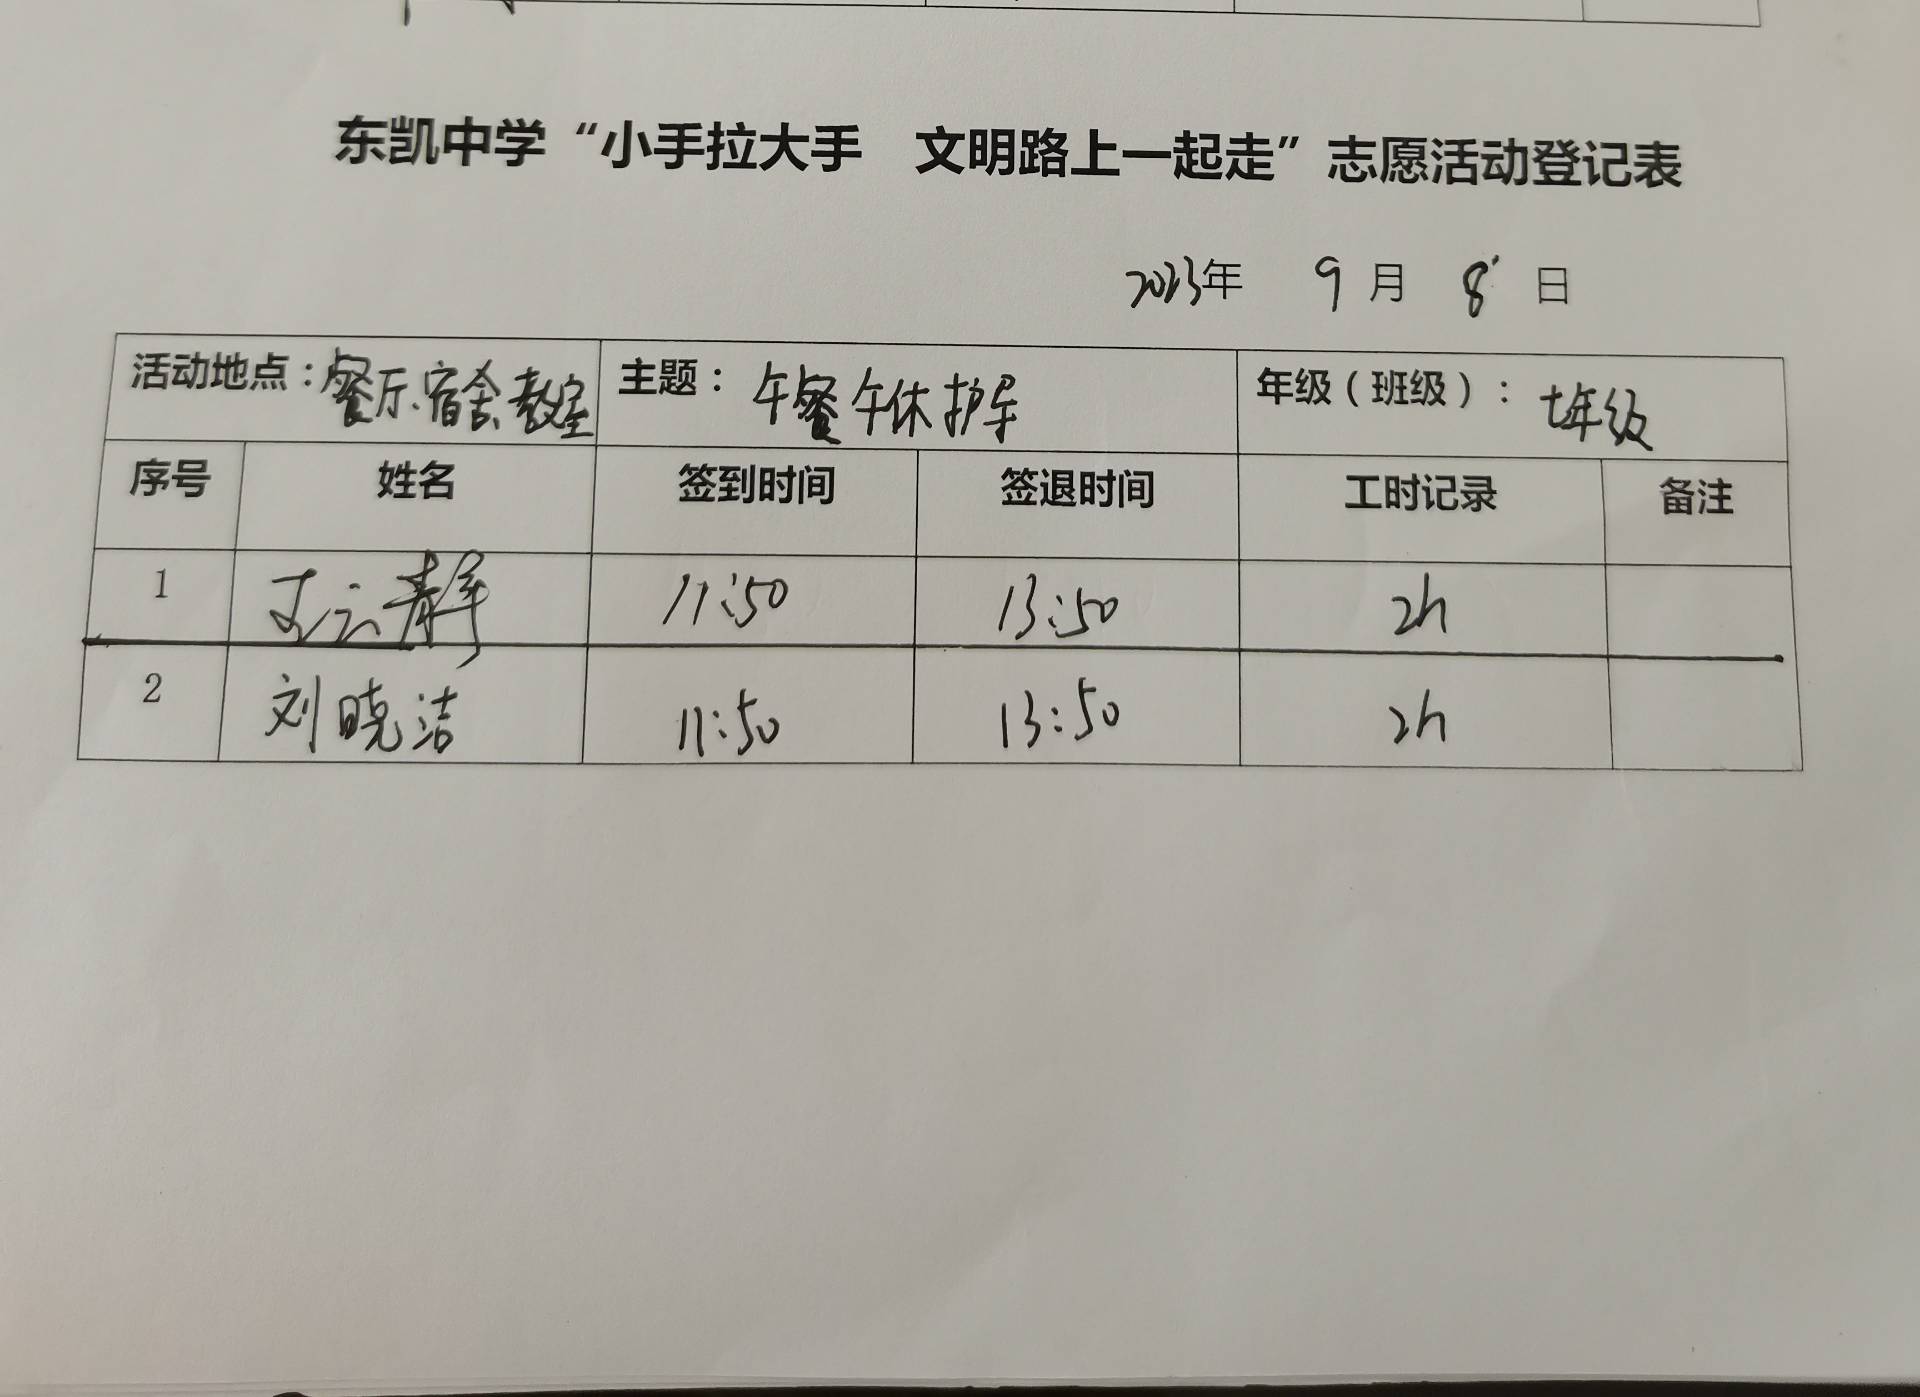 东凯中学“小手拉大手 文明路上一起走”志愿活动登记表
2023年 9月 8日
活动地点：餐厅、宿舍、教室 主题：午餐午休护导 年级（班级）：七年级
序号 姓名 签到时间 签退时间 工时记录 备注
1 云静 11:50 13:50 2h
2 刘晓洁 11:50 13:50 2h